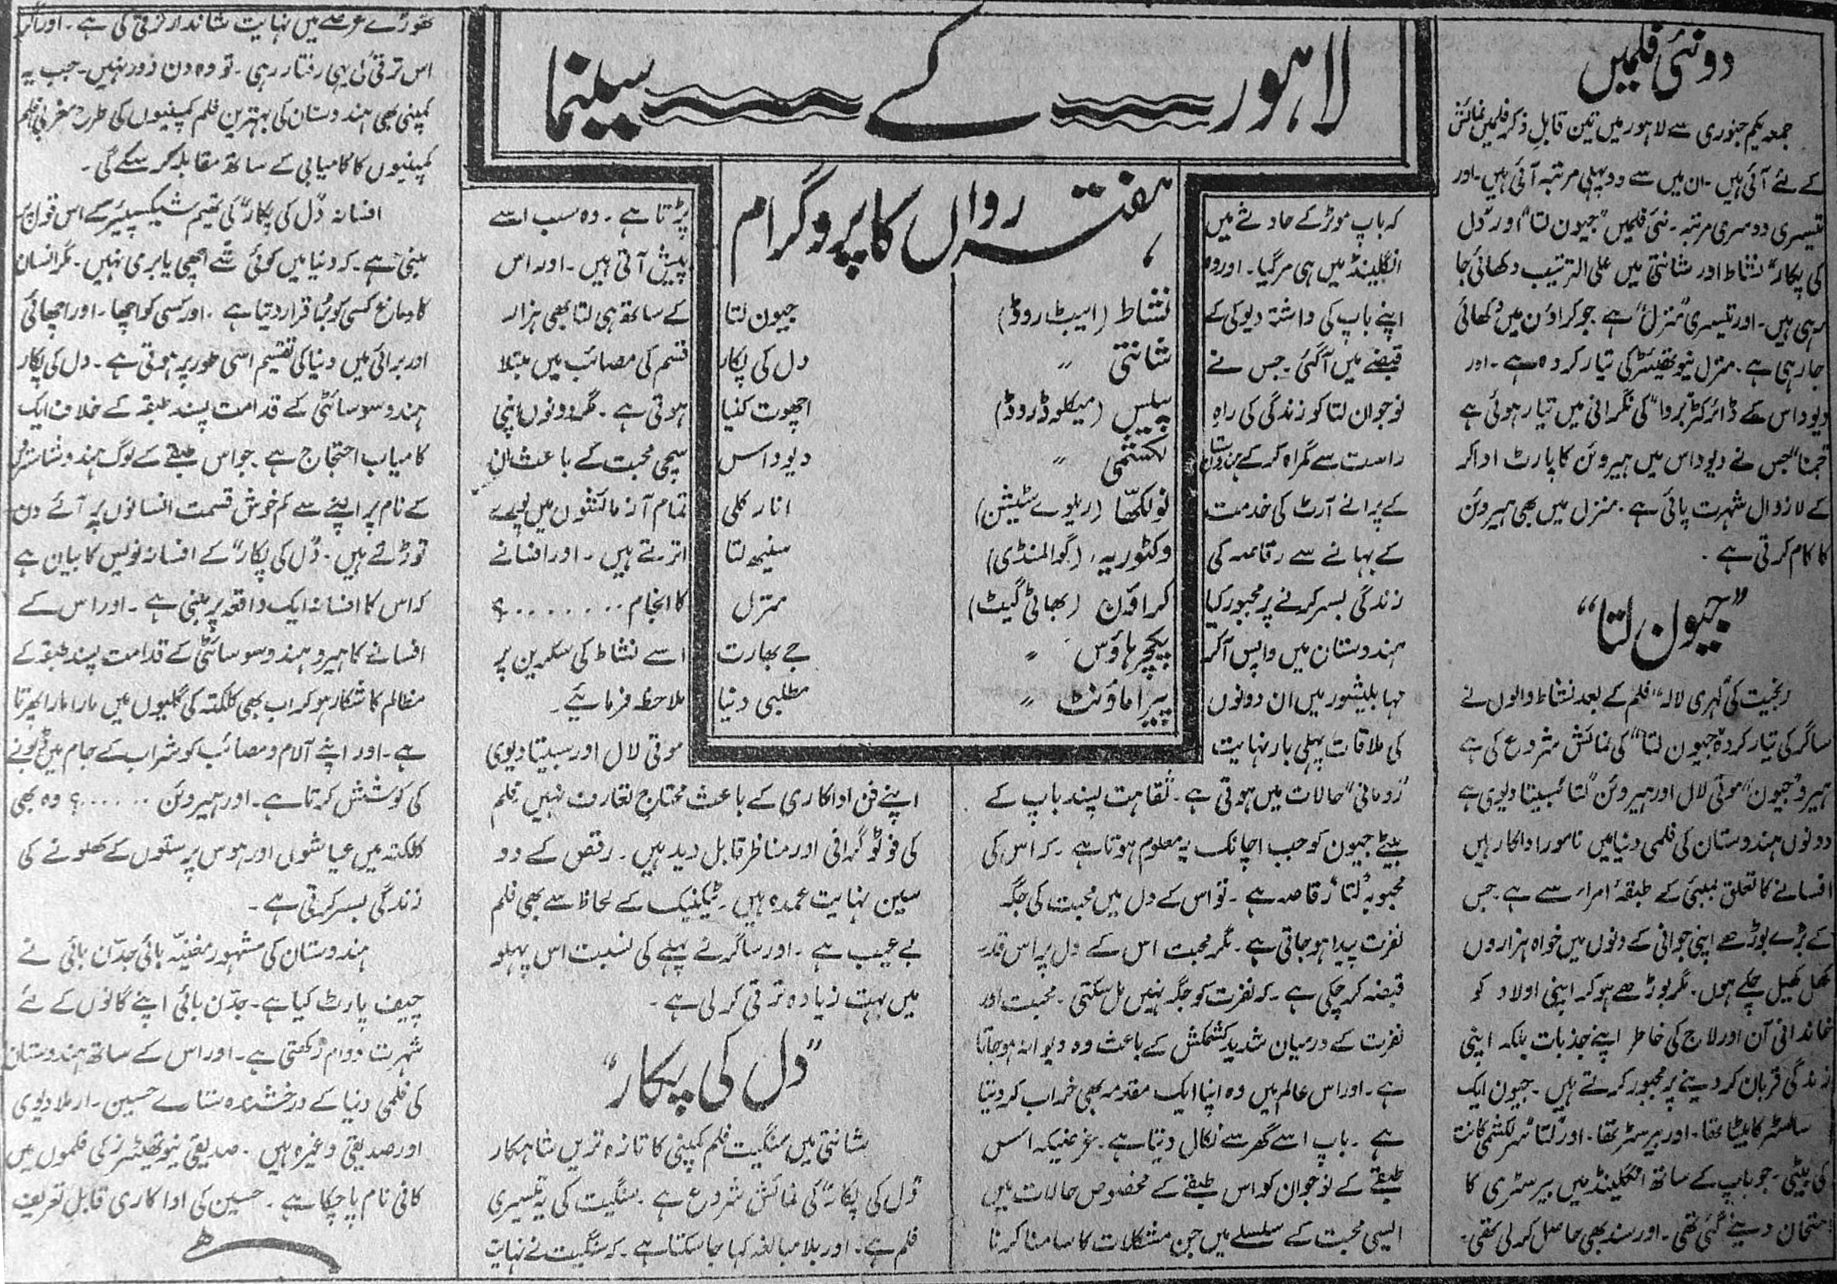 لاہور کے سینما
ہفتہ رواں کا پروگرام
نشاط (ایبٹ روڈ) جیون لتا
شانتی 〃 دل کی پکار
پیلس (میکلوڈ روڈ) اچھوت کنیا
لکشمی 〃 دیوداس
نولکھا (ریلوے سٹیشن) انارکلی
وکٹوریہ (گوالمنڈی) سنیھ لتا
کراؤن (بھاٹی گیٹ) منزل
پکچر ہاؤس 〃 جے بھارت
پیراماؤنٹ 〃 مطلبی دنیا
دو نئی فلمیں
جمعہ یکم جنوری سے لاہور میں تین قابل ذکر فلمیں نمائش
کے لئے آئی ہیں۔ ان میں سے دو پہلی مرتبہ آئی ہیں۔ اور
تیسری دوسری مرتبہ۔ نئی فلمیں "جیون لتا" اور "دل
کی پکار" نشاط اور شانتی میں علی الترتیب دکھائی جا
رہی ہیں۔ اور تیسری "منزل" ہے جو کراؤن میں دکھائی
جا رہی ہے۔ منزل نیو تھیئٹر کی تیار کردہ ہے۔ اور
دیوداس کے ڈائرکٹر "بروا" کی نگرانی میں تیار ہوئی ہے
"جمنا" جس نے دیوداس میں ہیروئن کا پارٹ ادا کر
کے لازوال شہرت پائی ہے۔ منزل میں بھی ہیروئن
کا کام کرتی ہے۔
"جیون لتا"
رنجیت کی "لہری لالہ" فلم کے بعد نشاط والوں نے
ساگر کی تیار کردہ "جیون لتا" کی نمائش شروع کی ہے
ہیرو "جیون" موتی لال اور ہیروئن "لتا" سبیتا دیوی ہے
دونوں ہندوستان کی فلمی دنیا میں نامور اداکار ہیں
افسانے کا تعلق بمبئی کے طبقۂ امراء سے ہے۔ جس
کے بڑے بوڑھے اپنی جوانی کے دنوں میں خواہ ہزاروں
کھل کھیل چکے ہوں۔ مگر بوڑھے ہو کر اپنی اولاد کو
خاندانی آن اور لاج کی خاطر اپنے جذبات بلکہ اپنی
زندگی قربان کر دینے پر مجبور کرتے ہیں۔ جیون ایک
سالسٹر کا بیٹا تھا۔ اور بیرسٹر تھا۔ اور "لتا" سر لکشمی کانت
کی بیٹی۔ جو باپ کے ساتھ انگلینڈ میں بیرسٹری کا
امتحان دینے گئی تھی۔ اور سند بھی حاصل کر لی تھی۔
کہ باپ موٹر کے حادثے میں
انگلینڈ میں ہی مر گیا۔ اور وہ
اپنے باپ کی داشتہ دیوکی کے
قبضے میں آ گئی۔ جس نے
نوجوان لتا کو زندگی کی راہِ
راست سے گمراہ کر کے ہندوستان
کے پرانے آرٹ کی خدمت
کے بہانے سے رقاصہ کی
زندگی بسر کرنے پر مجبور کیا
ہندوستان میں واپس آ کر
مہابلیشور میں ان دونوں
کی ملاقات پہلی بار نہایت
"رومانی" حالات میں ہوتی ہے۔ ثقاہت پسند باپ کے
بیٹے جیون کو جب اچانک یہ معلوم ہوتا ہے۔ کہ اس کی
محبوبہ "لتا" رقاصہ ہے۔ تو اس کے دل میں محبت کی جگہ
نفرت پیدا ہو جاتی ہے۔ مگر محبت اس کے دل پر اس قدر
قبضہ کر چکی ہے۔ کہ نفرت کو جگہ نہیں مل سکتی۔ محبت اور
نفرت کے درمیان شدید کشمکش کے باعث وہ دیوانہ ہو جاتا
ہے۔ اور اس عالم میں وہ اپنا ایک مقدمہ بھی خراب کر دیتا
ہے۔ باپ اسے گھر سے نکال دیتا ہے۔ غرضیکہ اس
طبقے کے نوجوان کو اس طبقے کے مخصوص حالات میں
ایسی محبت کے سلسلے میں جن مشکلات کا سامنا کرنا
پڑتا ہے۔ وہ سب اسے
پیش آتی ہیں۔ اور اس
کے ساتھ ہی لتا بھی ہزار
قسم کی مصائب میں مبتلا
ہوتی ہے۔ مگر دونوں اپنی
سچی محبت کے باعث ان
تمام آزمائشوں میں پورے
اترتے ہیں۔ اور افسانے
کا انجام ........؟
اسے نشاط کی سکرین پر
ملاحظہ فرمائیے۔
موتی لال اور سبیتا دیوی
اپنے فن اداکاری کے باعث محتاج تعارف نہیں فلم
کی فوٹوگرافی اور مناظر قابل دید ہیں۔ رقص کے دو
سین نہایت عمدہ ہیں۔ ٹیکنیک کے لحاظ سے بھی فلم
بے عیب ہے۔ اور ساگر نے پہلے کی نسبت اس پہلو
میں بہت زیادہ ترقی کر لی ہے۔
"دل کی پکار"
شانتی میں سنگیت فلم کمپنی کا تازہ ترین شاہکار
"دل کی پکار" کی نمائش شروع ہے۔ سنگیت کی یہ تیسری
فلم ہے۔ اور بلا مبالغہ کہا جا سکتا ہے۔ کہ سنگیت نے نہایت
تھوڑے عرصے میں نہایت شاندار ترقی کی ہے۔ اور اگر
اس ترقی کی یہی رفتار رہی۔ تو وہ دن دور نہیں۔ جب یہ
کمپنی بھی ہندوستان کی بہترین فلم کمپنیوں کی طرح مغربی فلم
کمپنیوں کا کامیابی کے ساتھ مقابلہ کر سکے گی۔
افسانہ "دل کی پکار" کی تھیم شیکسپیئر کے اس قول پر
مبنی ہے۔ کہ دنیا میں کوئی شے اچھی یا بری نہیں۔ مگر انسان
کا دماغ کسی کو برا قرار دیتا ہے۔ اور کسی کو اچھا۔ اور اچھائی
اور برائی میں دنیا کی تقسیم اسی طور پر ہوتی ہے۔ دل کی پکار
ہندو سوسائٹی کے قدامت پسند طبقہ کے خلاف ایک
کامیاب احتجاج ہے۔ جو اس طبقے کے لوگ ہندو شاستروں
کے نام پر اپنے سے کم خوش قسمت انسانوں پر آئے دن
توڑتے ہیں۔ "دل کی پکار" کے افسانہ نویس کا بیان ہے
کہ اس کا افسانہ ایک واقعہ پر مبنی ہے۔ اور اس کے
افسانے کا ہیرو ہندو سوسائٹی کے قدامت پسند طبقہ کے
مظالم کا شکار ہو کر اب بھی کلکتہ کی گلیوں میں مارا مارا پھرتا
ہے۔ اور اپنے آلام و مصائب کو شراب کے جام میں ڈبونے
کی کوشش کرتا ہے۔ اور ہیروئن ......؟ وہ بھی
کلکتہ میں عیاشوں اور ہوس پرستوں کے کھلونے کی
زندگی بسر کرتی ہے۔
ہندوستان کی مشہور مغنیہ بائی جدن بائی نے
چیف پارٹ کیا ہے۔ جدن بائی اپنے گانوں کے لئے
شہرت دوام رکھتی ہے۔ اور اس کے ساتھ ہندوستان
کی فلمی دنیا کے درخشندہ ستارے حسین۔ ارملا دیوی
اور صدیقی وغیرہ ہیں۔ صدیقی نیو تھیئٹرز کی فلموں میں
کافی نام پا چکا ہے۔ حسین کی اداکاری قابل تعریف
ہے